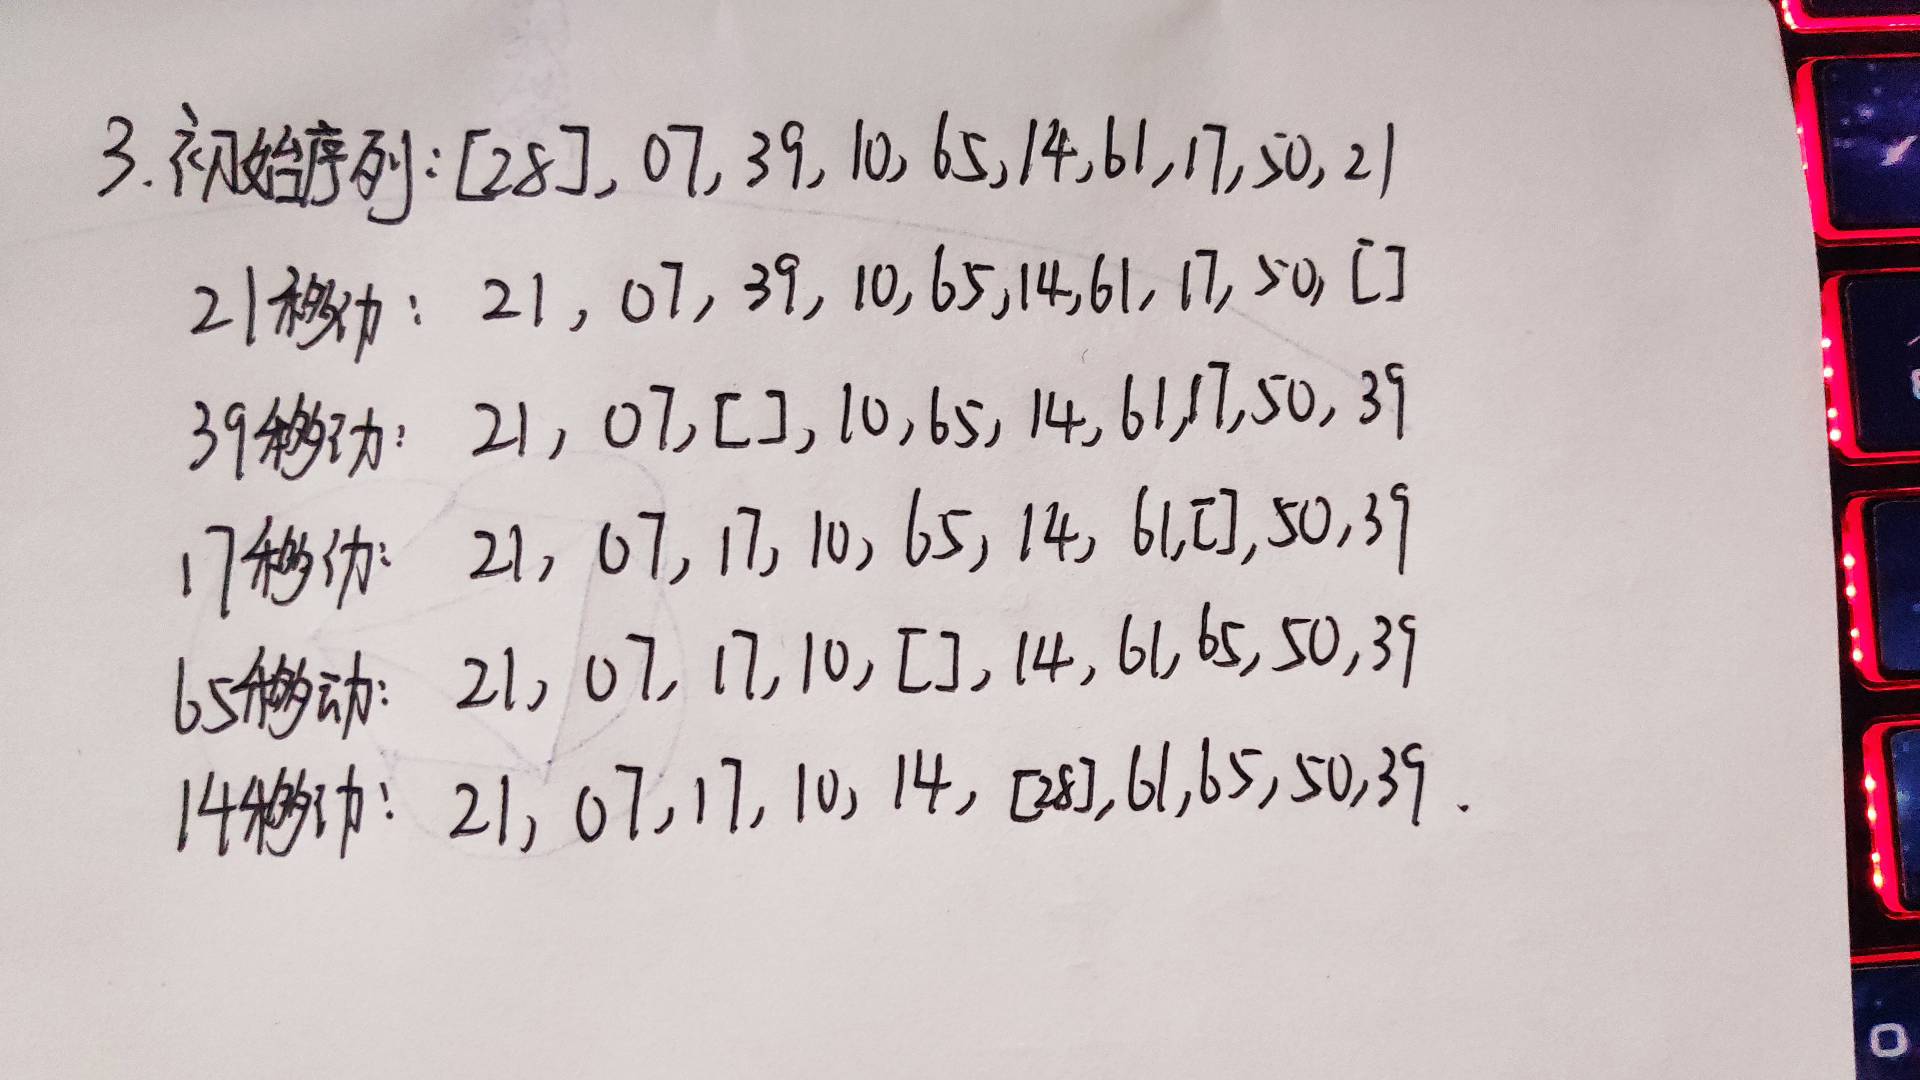 3.初始序列:[28],07,39,10,65,14,61,17,50,21
21移动:21,07,39,10,65,14,61,17,50,[]
39移动:21,07,[],10,65,14,61,17,50,39
17移动:21,07,17,10,65,14,61,[],50,39
65移动:21,07,17,10,[],14,61,65,50,39
14移动:21,07,17,10,14,[28],61,65,50,39.
O